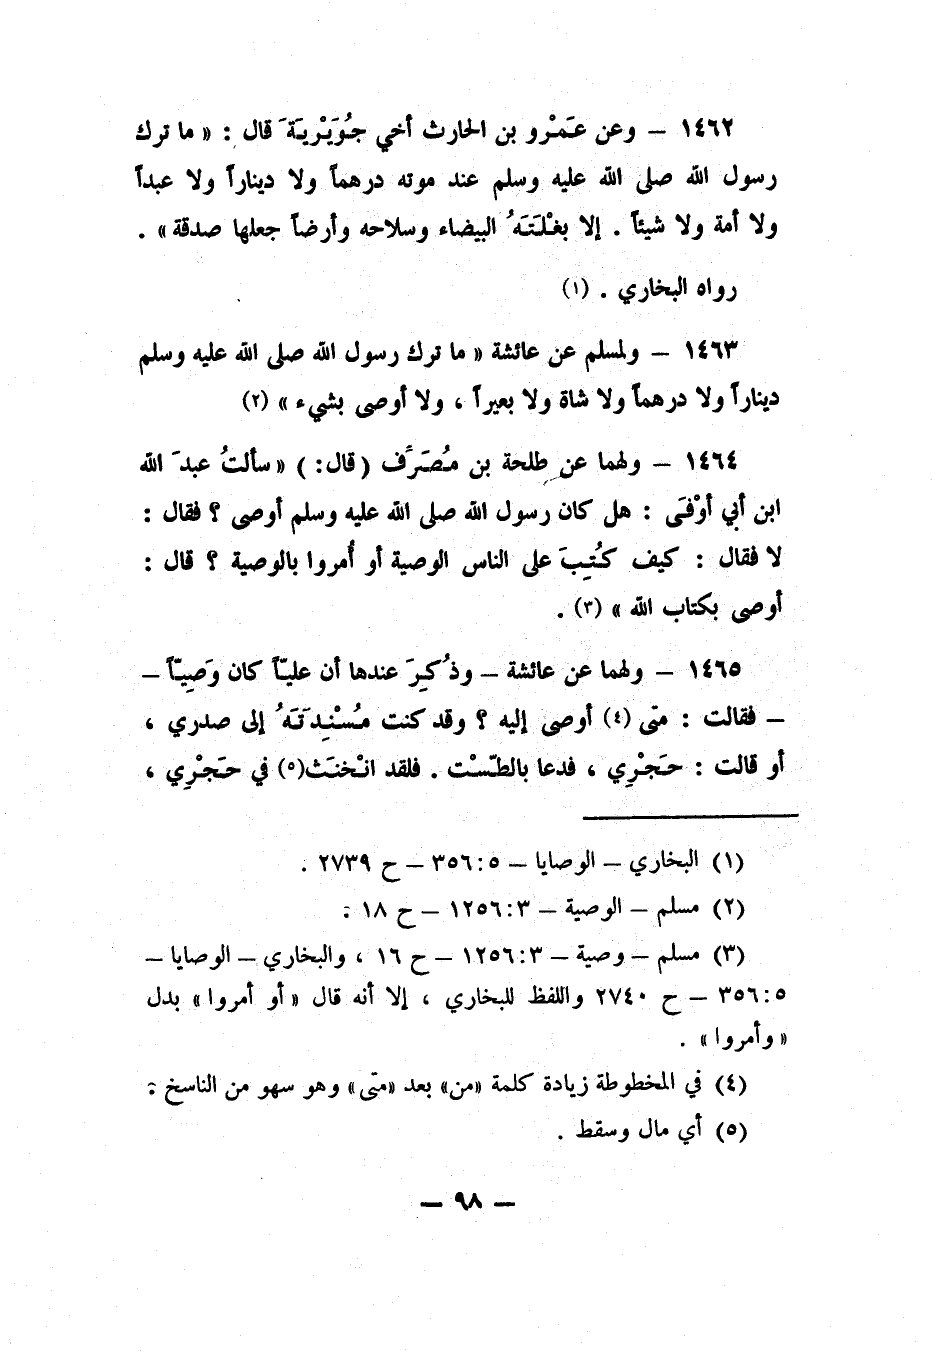 ١٤٦٢ – وعن عَمْرو بن الحارث أخي جُوَيْرِيَةَ قال : « ما ترك
رسول الله صلى الله عليه وسلم عند موته درهماً ولا ديناراً ولا عبداً
ولا أمة ولا شيئاً . إلا بغْلَتَهُ البيضاء وسلاحه وأرضاً جعلها صدقة » .
رواه البخاري . (١)
١٤٦٣ – ولمسلم عن عائشة « ما ترك رسول الله صلى الله عليه وسلم
ديناراً ولا درهماً ولا شاة ولا بعيراً ، ولا أوصى بشيء » (٢)
١٤٦٤ – ولهما عن طلحة بن مُصَرِّف (قال: ) « سألتُ عبدَ الله
ابن أبي أوْفَى : هل كان رسول الله صلى الله عليه وسلم أوصى ؟ فقال :
لا فقال : كيف كُتِبَ على الناس الوصية أو أُمروا بالوصية ؟ قال :
أوصى بكتاب الله » (٣) .
١٤٦٥ – ولهما عن عائشة – وذُكِرَ عندها أن عليّاً كان وَصِيّاً –
– فقالت : متى (٤) أوصى إليه ؟ وقد كنت مُسْنِدَتَهُ إلى صدري ،
أو قالت : حَجْرِي ، فدعا بالطّسْت . فلقد انْخنَث(٥) في حَجْرِي ،
(١) البخاري – الوصايا – ٣٥٦:٥ – ح ٢٧٣٩ .
(٢) مسلم – الوصية – ١٢٥٦:٣ – ح ١٨ .
(٣) مسلم – وصية – ١٢٥٦:٣ – ح ١٦ ، والبخاري – الوصايا –
٣٥٦:٥ – ح ٢٧٤٠ واللفظ للبخاري ، إلا أنه قال « أو أمروا » بدل
« وأمروا » .
(٤) في المخطوطة زيادة كلمة «من» بعد «متى» وهو سهو من الناسخ .
(٥) أي مال وسقط .
– ٩٨ –